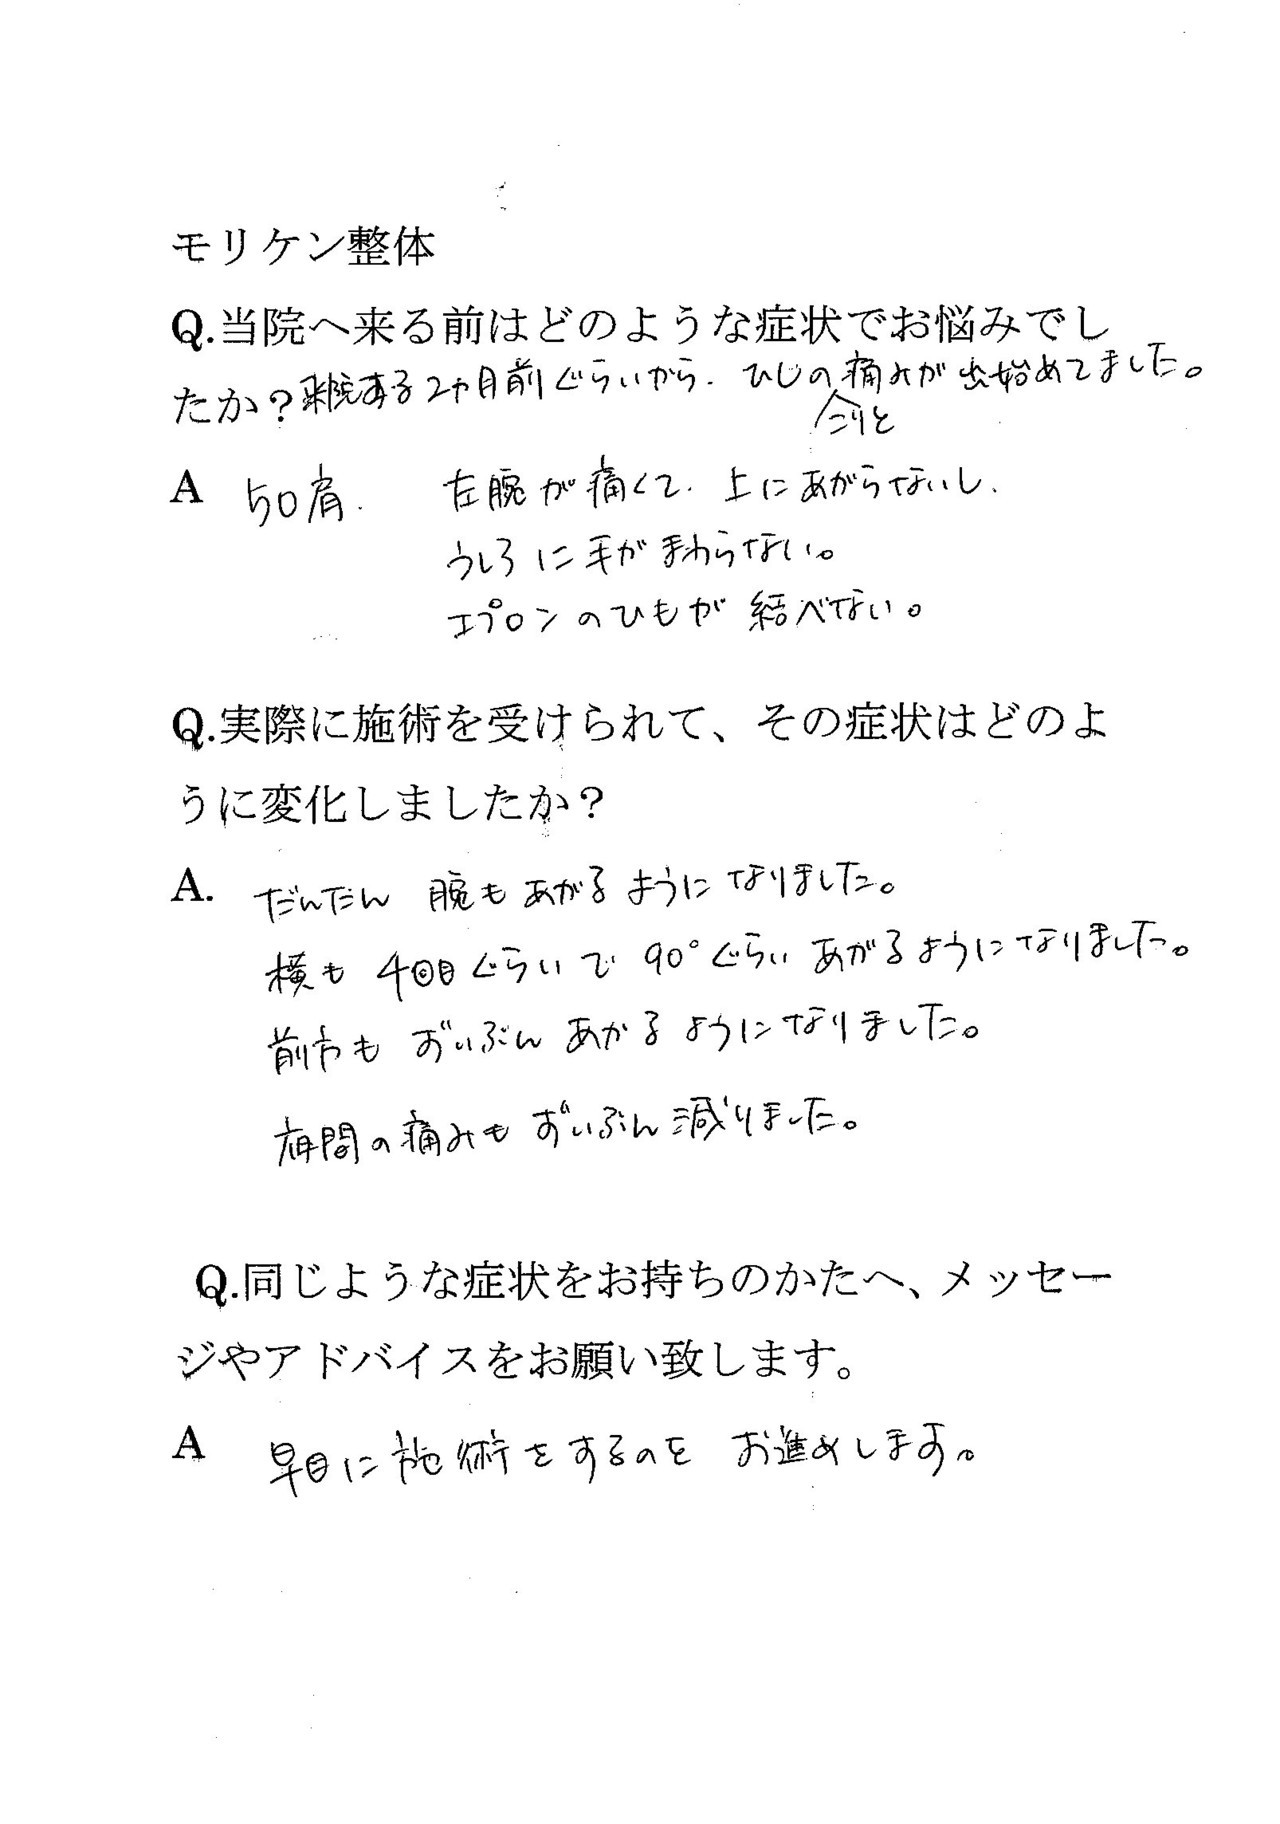 モリケン整体
Q.当院へ来る前はどのような症状でお悩みでし
たか？来院する2ヶ月前ぐらいから、ひじの痛みが出始めてました。
こりと
A 50肩. 左腕が痛くて、上にあがらないし、
うしろに手がまわらない。
エプロンのひもが結べない。
Q.実際に施術を受けられて、その症状はどのよ
うに変化しましたか？
A. だんだん 腕もあがるようになりました。
横も 4回目ぐらいで 90°ぐらい あがるようになりました。
前方も ずいぶん あがるようになりました。
夜間の痛みも ずいぶん減りました。
Q.同じような症状をお持ちのかたへ、メッセー
ジやアドバイスをお願い致します。
A 早目に施術をするのを お進めします。